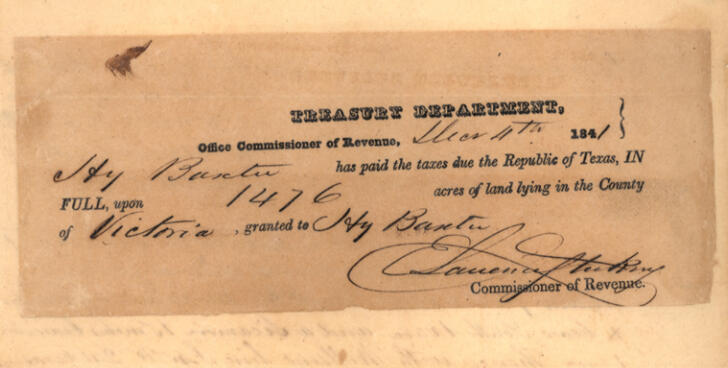 TREASURY DEPARTMENT,
Office Commissioner of Revenue, Decr 4th 1841
Hy Baxter has paid the taxes due the Republic of Texas, IN
FULL, upon 1476 acres of land lying in the County
of Victoria, granted to Hy Baxter
Commissioner of Revenue.